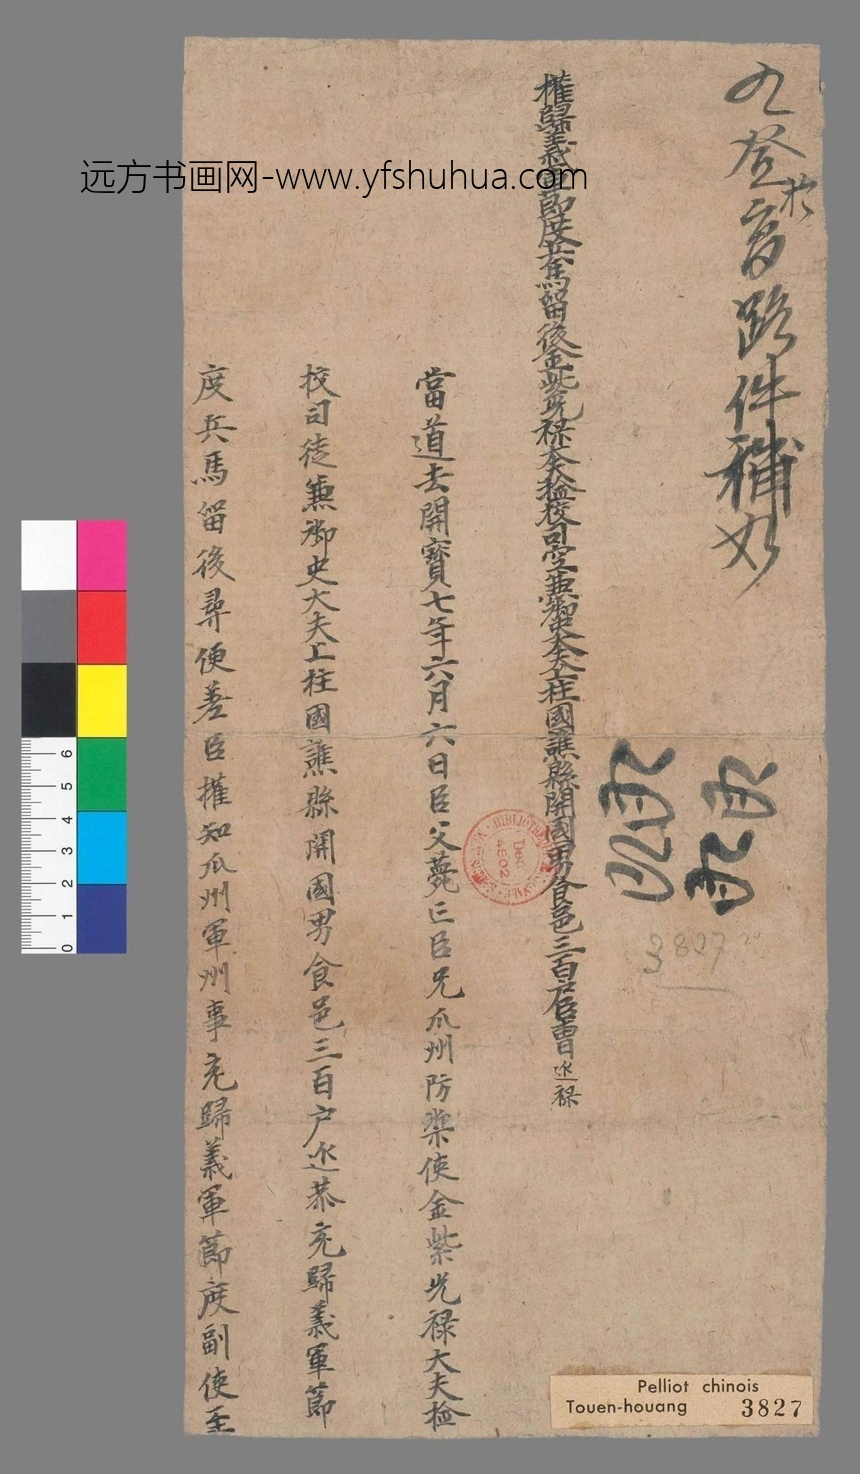 远方书画网-www.yfshuhua.com
權歸義軍節度兵馬留後金紫光祿大夫檢校司空兼御史大夫上柱國譙縣開國男食邑三百户臣曹延禄
當道去開寶七年六月六日臣父薨亡臣兄瓜州防禦使金紫光禄大夫檢
校司徒兼御史大夫上柱國譙縣開國男食邑三百户延恭充歸義軍節
度兵馬留後尋便差臣權知瓜州軍州事充歸義軍節度副使至
BIBLIOTHÈQUE
3827
Pelliot chinois
Touen-houang 3827
6
5
4
3
2
1
0